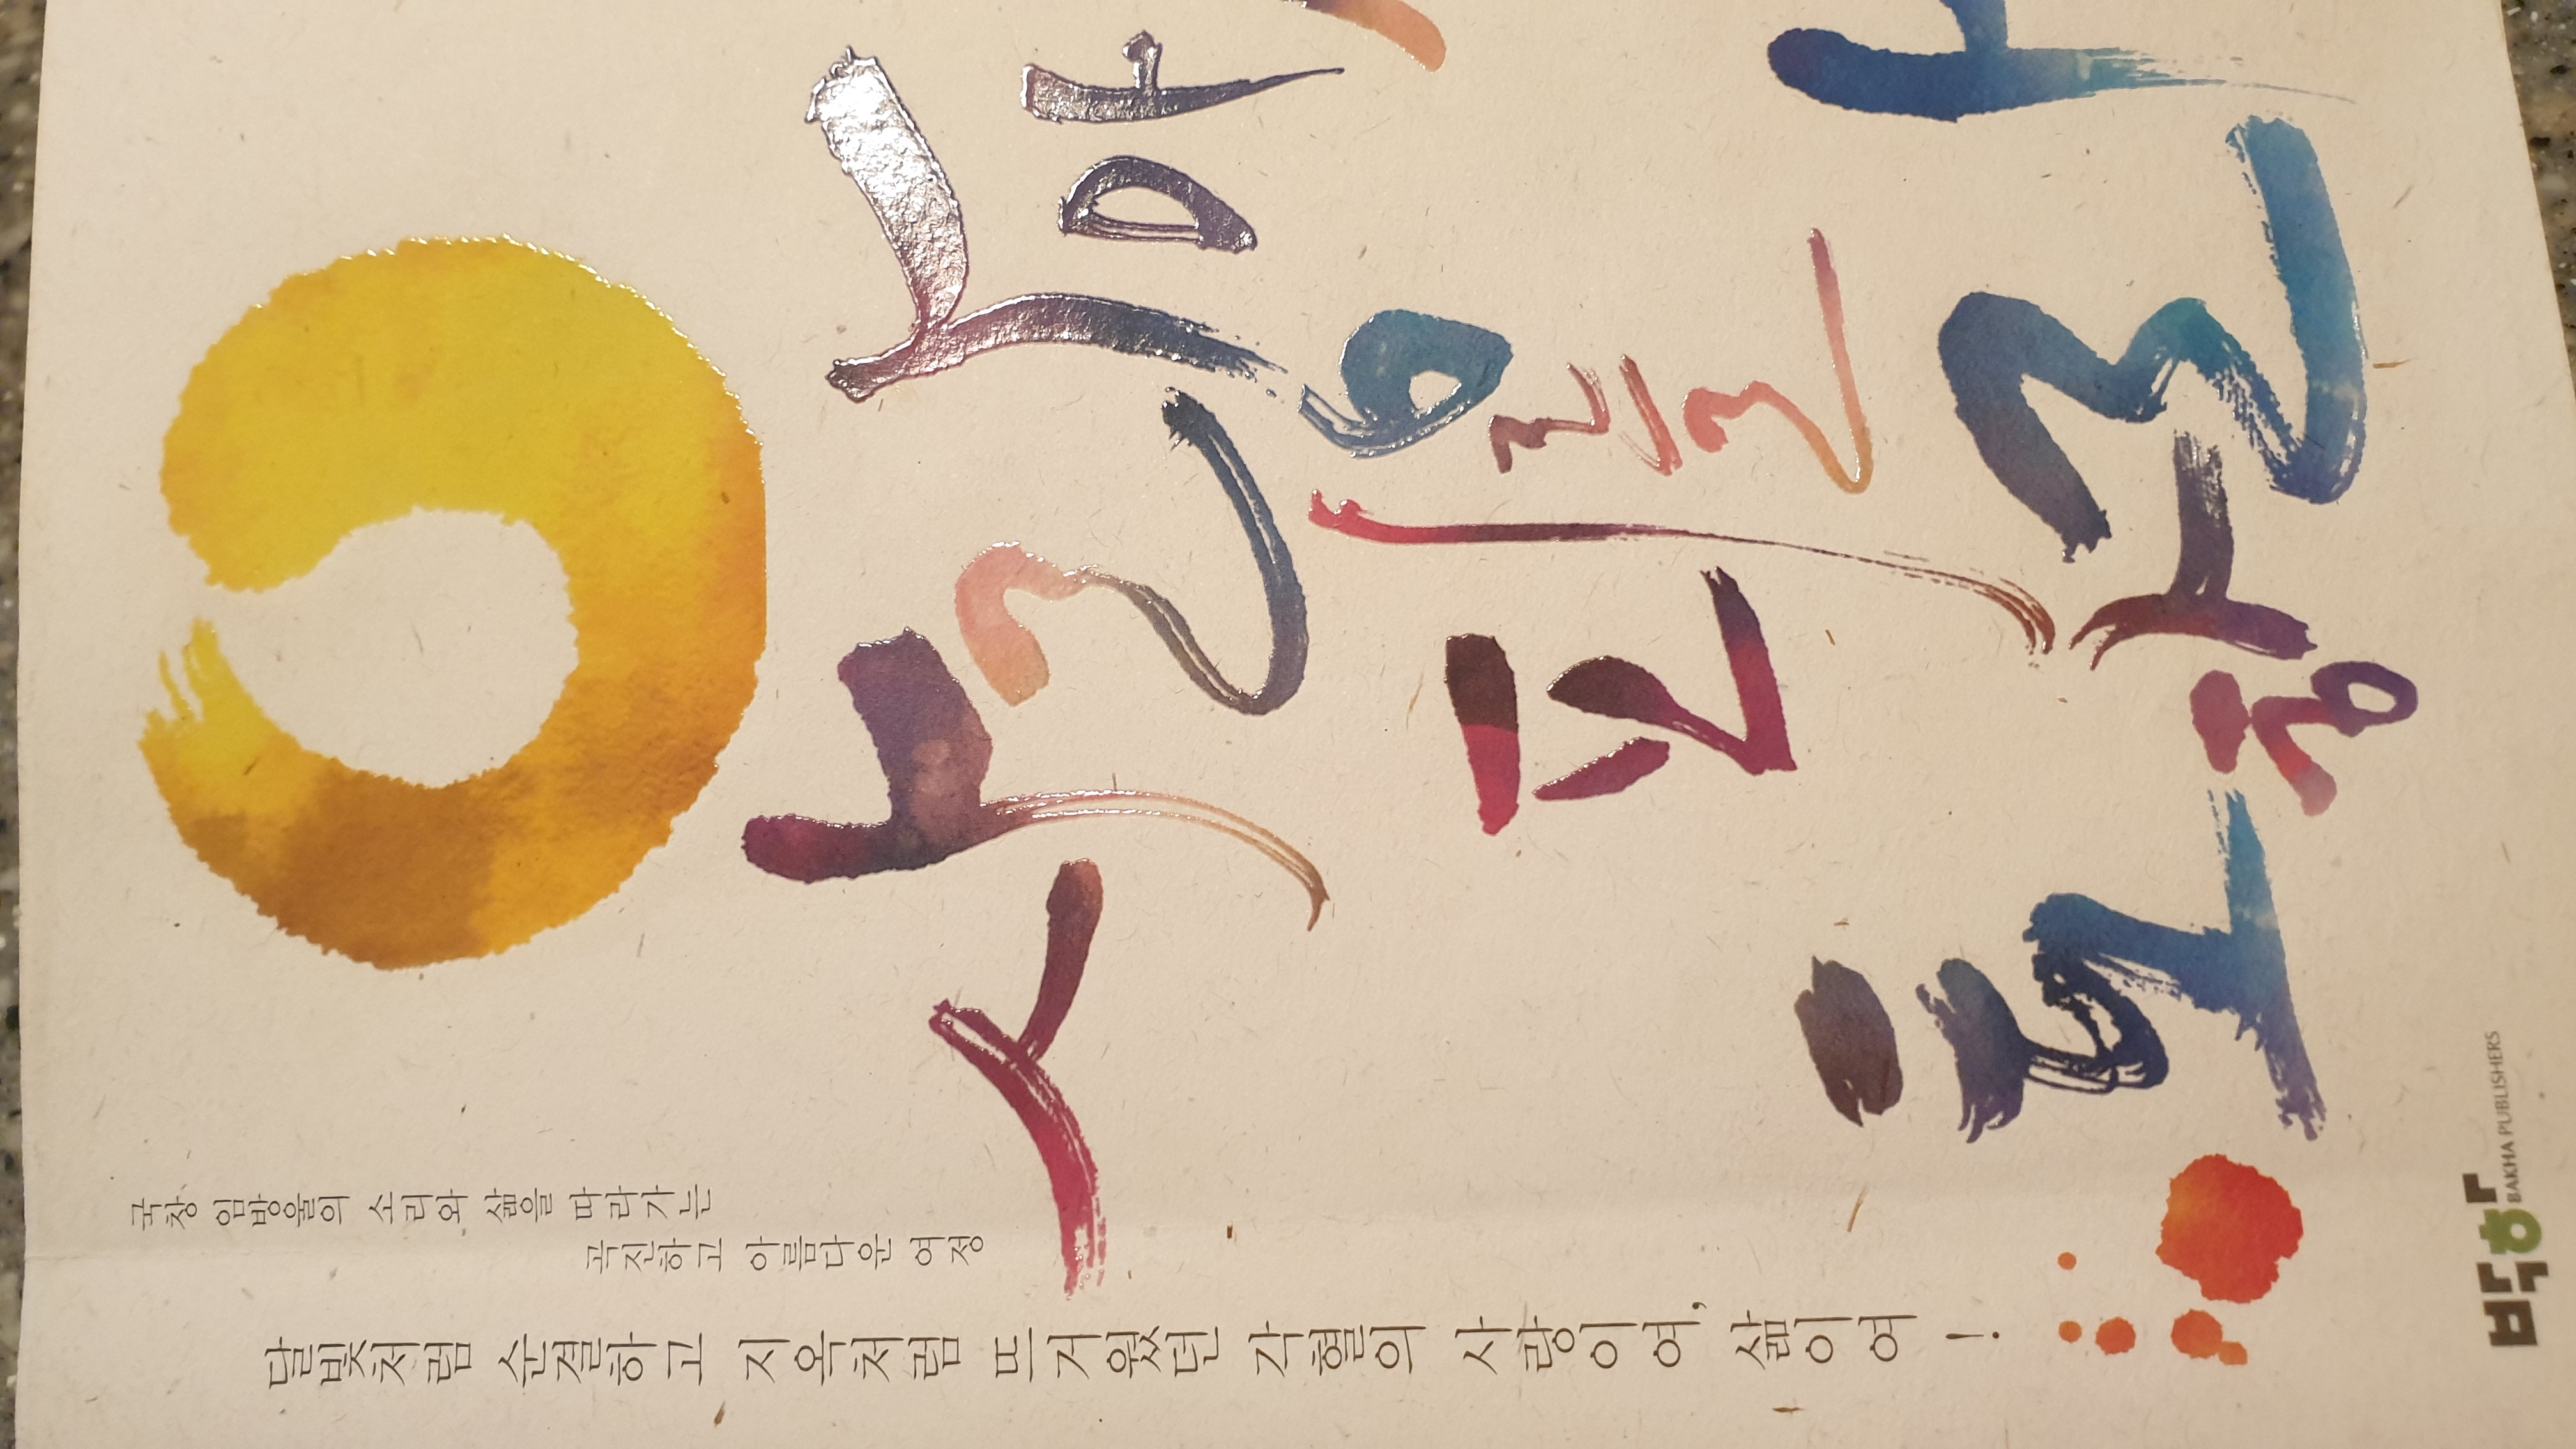 사랑아
피를
토하라
국창 임방울의 소리와 삶을 따라가는
곡진하고 아름다운 여정
달빛처럼 순결하고 지옥처럼 뜨거웠던 각혈의 사랑이여, 삶이여!
박하
BAKHA PUBLISHERS